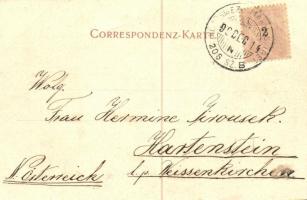 CORRESPONDENZ-KARTE
DEC
206 SZ. B
Wolg.
Frau Hermine Grousek.
Hartenstein
N. Österreich l. p. Weissenkirchen